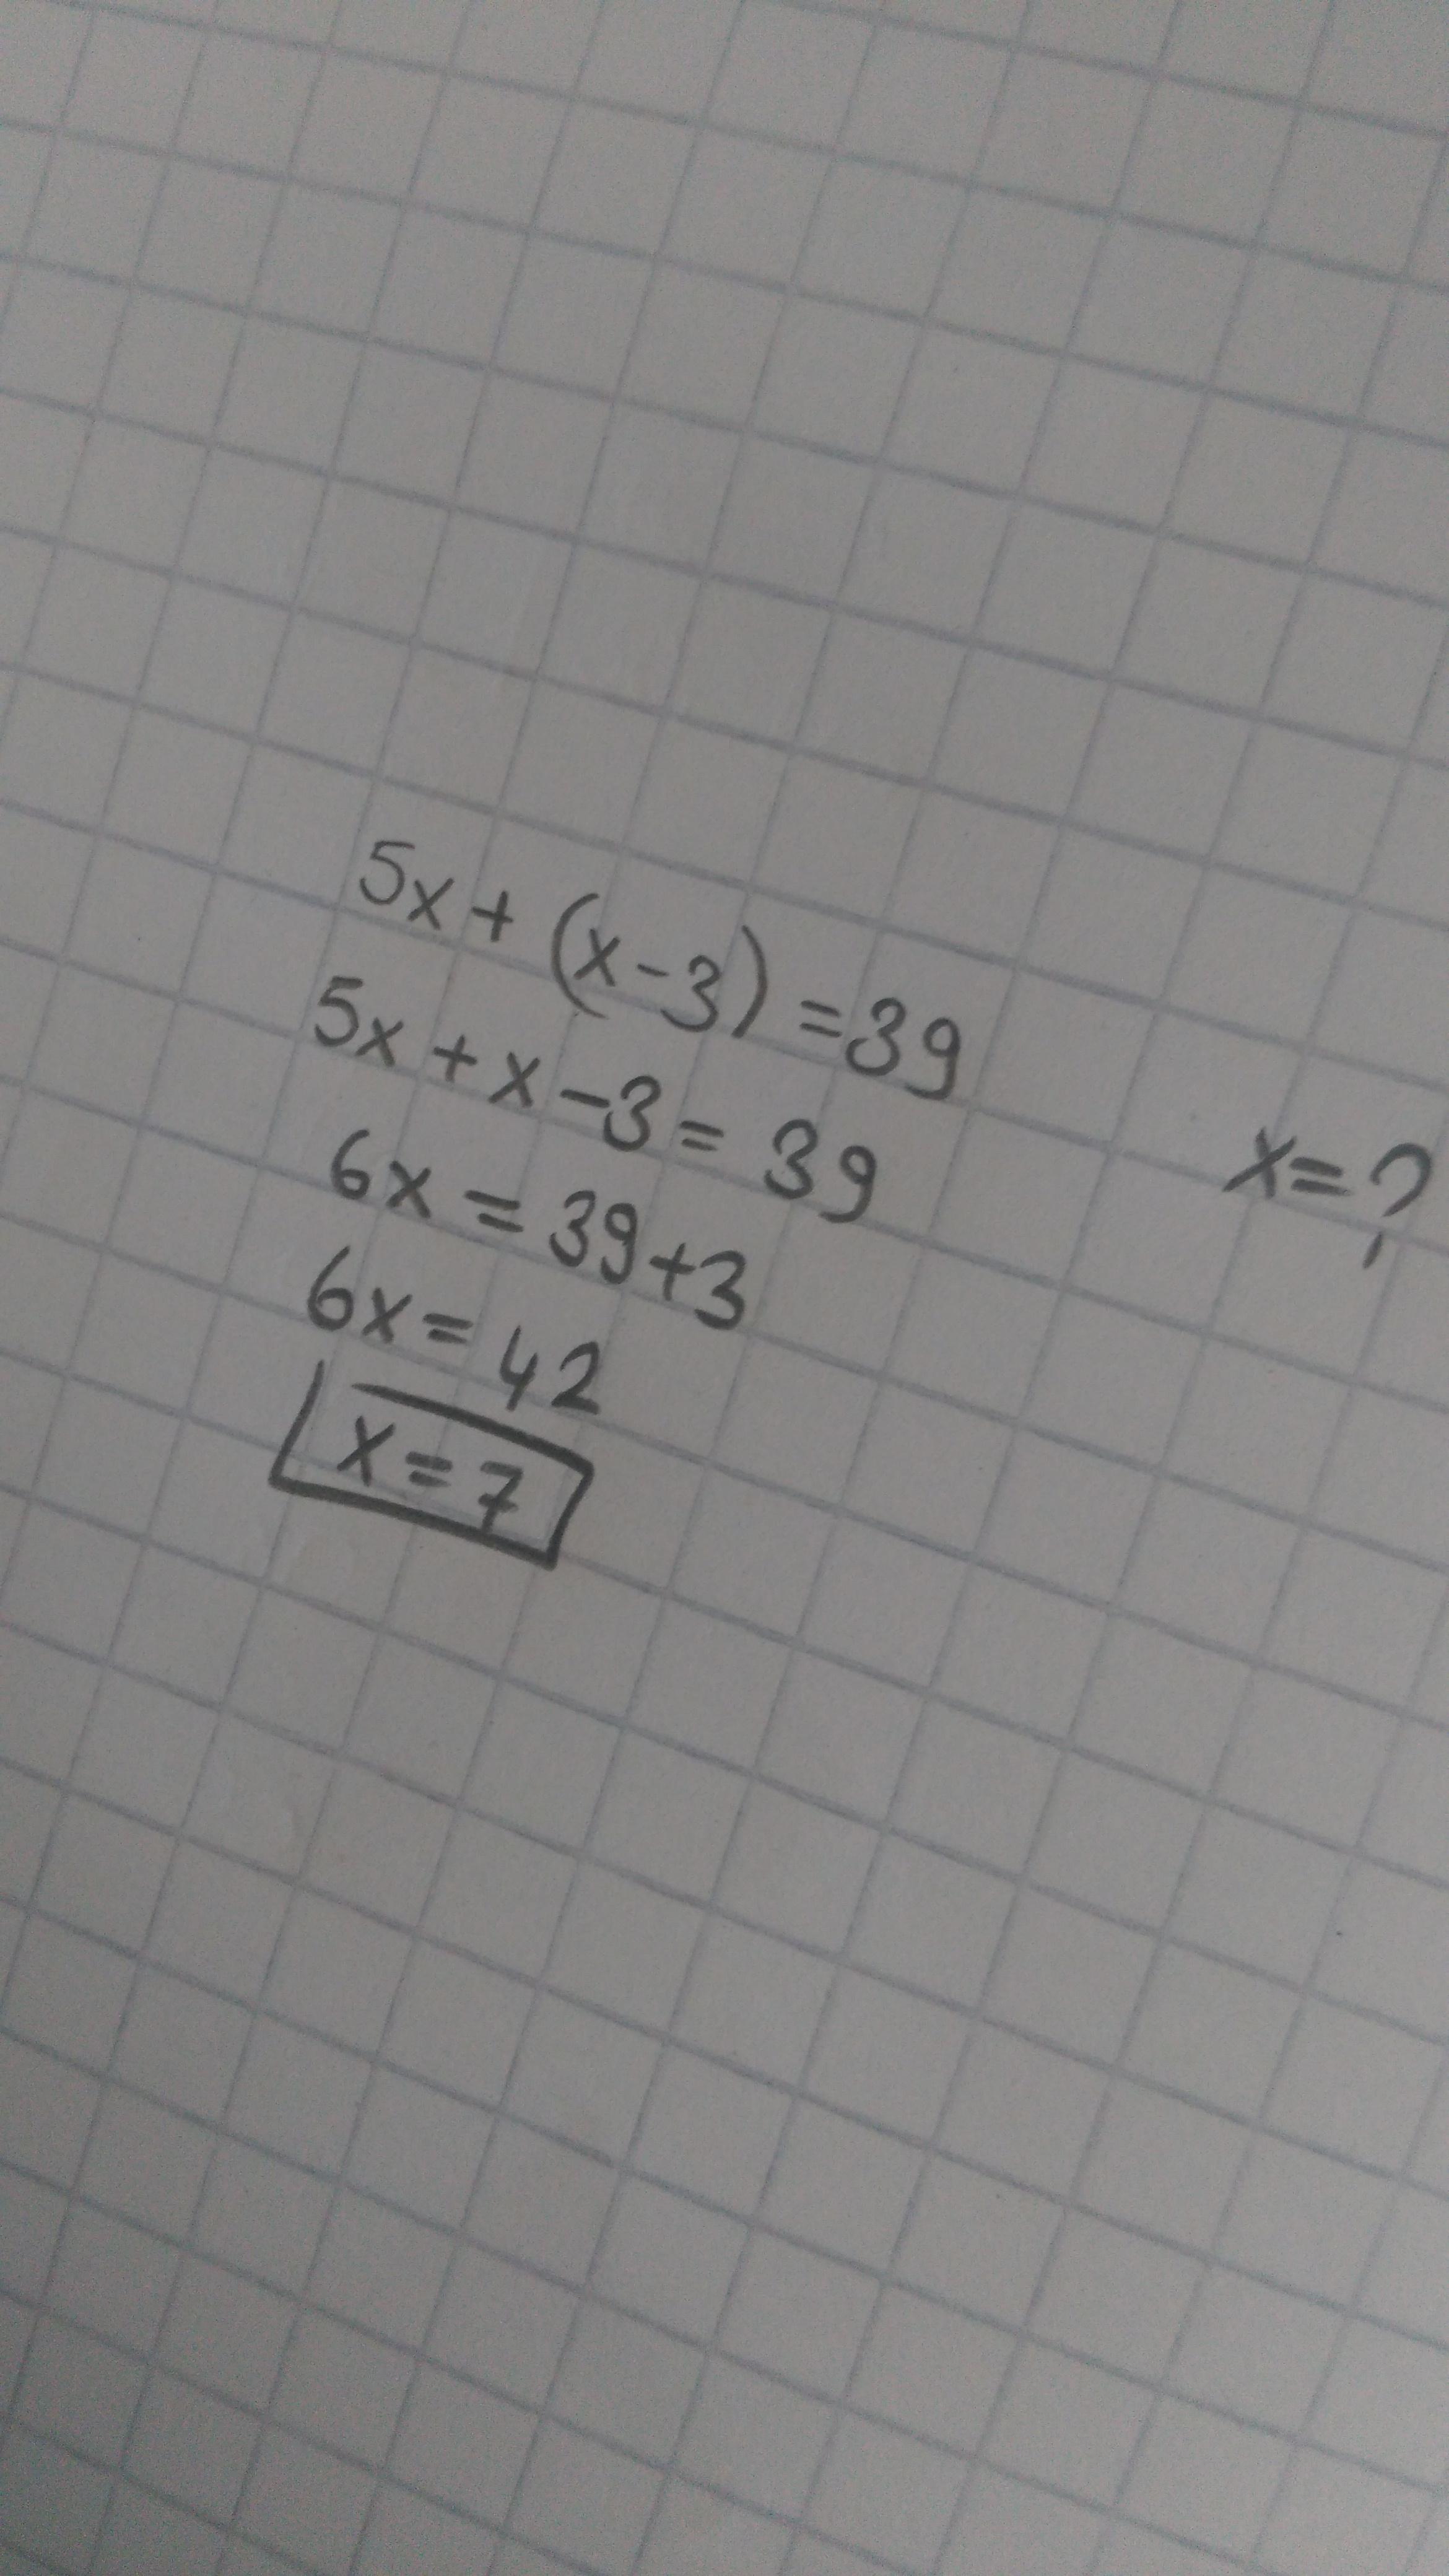 5x + (x-3) = 39
x = ?
5x + x - 3 = 39
6x = 39+3
6x = 42
x = 7